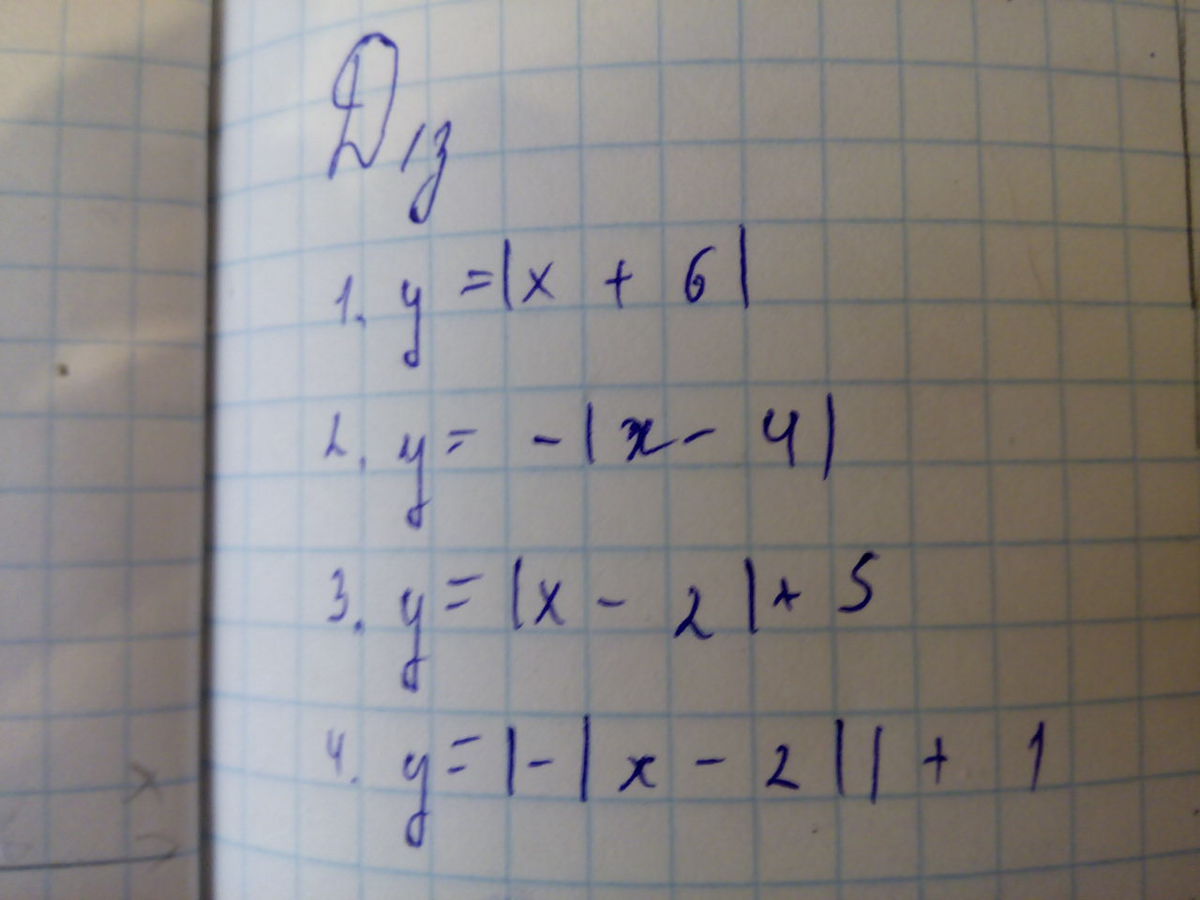 Д/з
1. y = |x + 6|
2. y = - |x - 4|
3. y = |x - 2| + 5
4. y = |-|x - 2|| + 1